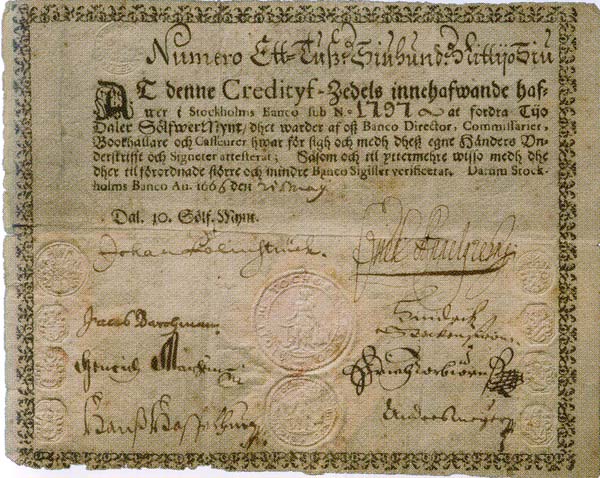 Numero Ett-Tusze Siuhunde Nittijo Siu
AT denne Credityf-Zedels innehafwande haf-
wer i Stockholms Banco sub N° 1797 at fordra Tijo
Daler Sölfwer Mynt/ dhet warder af oß Banco Director, Commissarier,
Bookhållare och Casseurer hwar för sigh och medh dheß egne Händers Vn-
derskrifft och Signeter attesterat; Såsom och til yttermehre wisso medh dhe
dher til förordnade större och mindre Banco Sigiller verificerat. Datum Stock-
holms Banco An. 1666 den May
Dal. 10. Sölf. Mynt.
Johan Palmstruck.
Jacob
Hinrich
Hanß
Anders Meyer